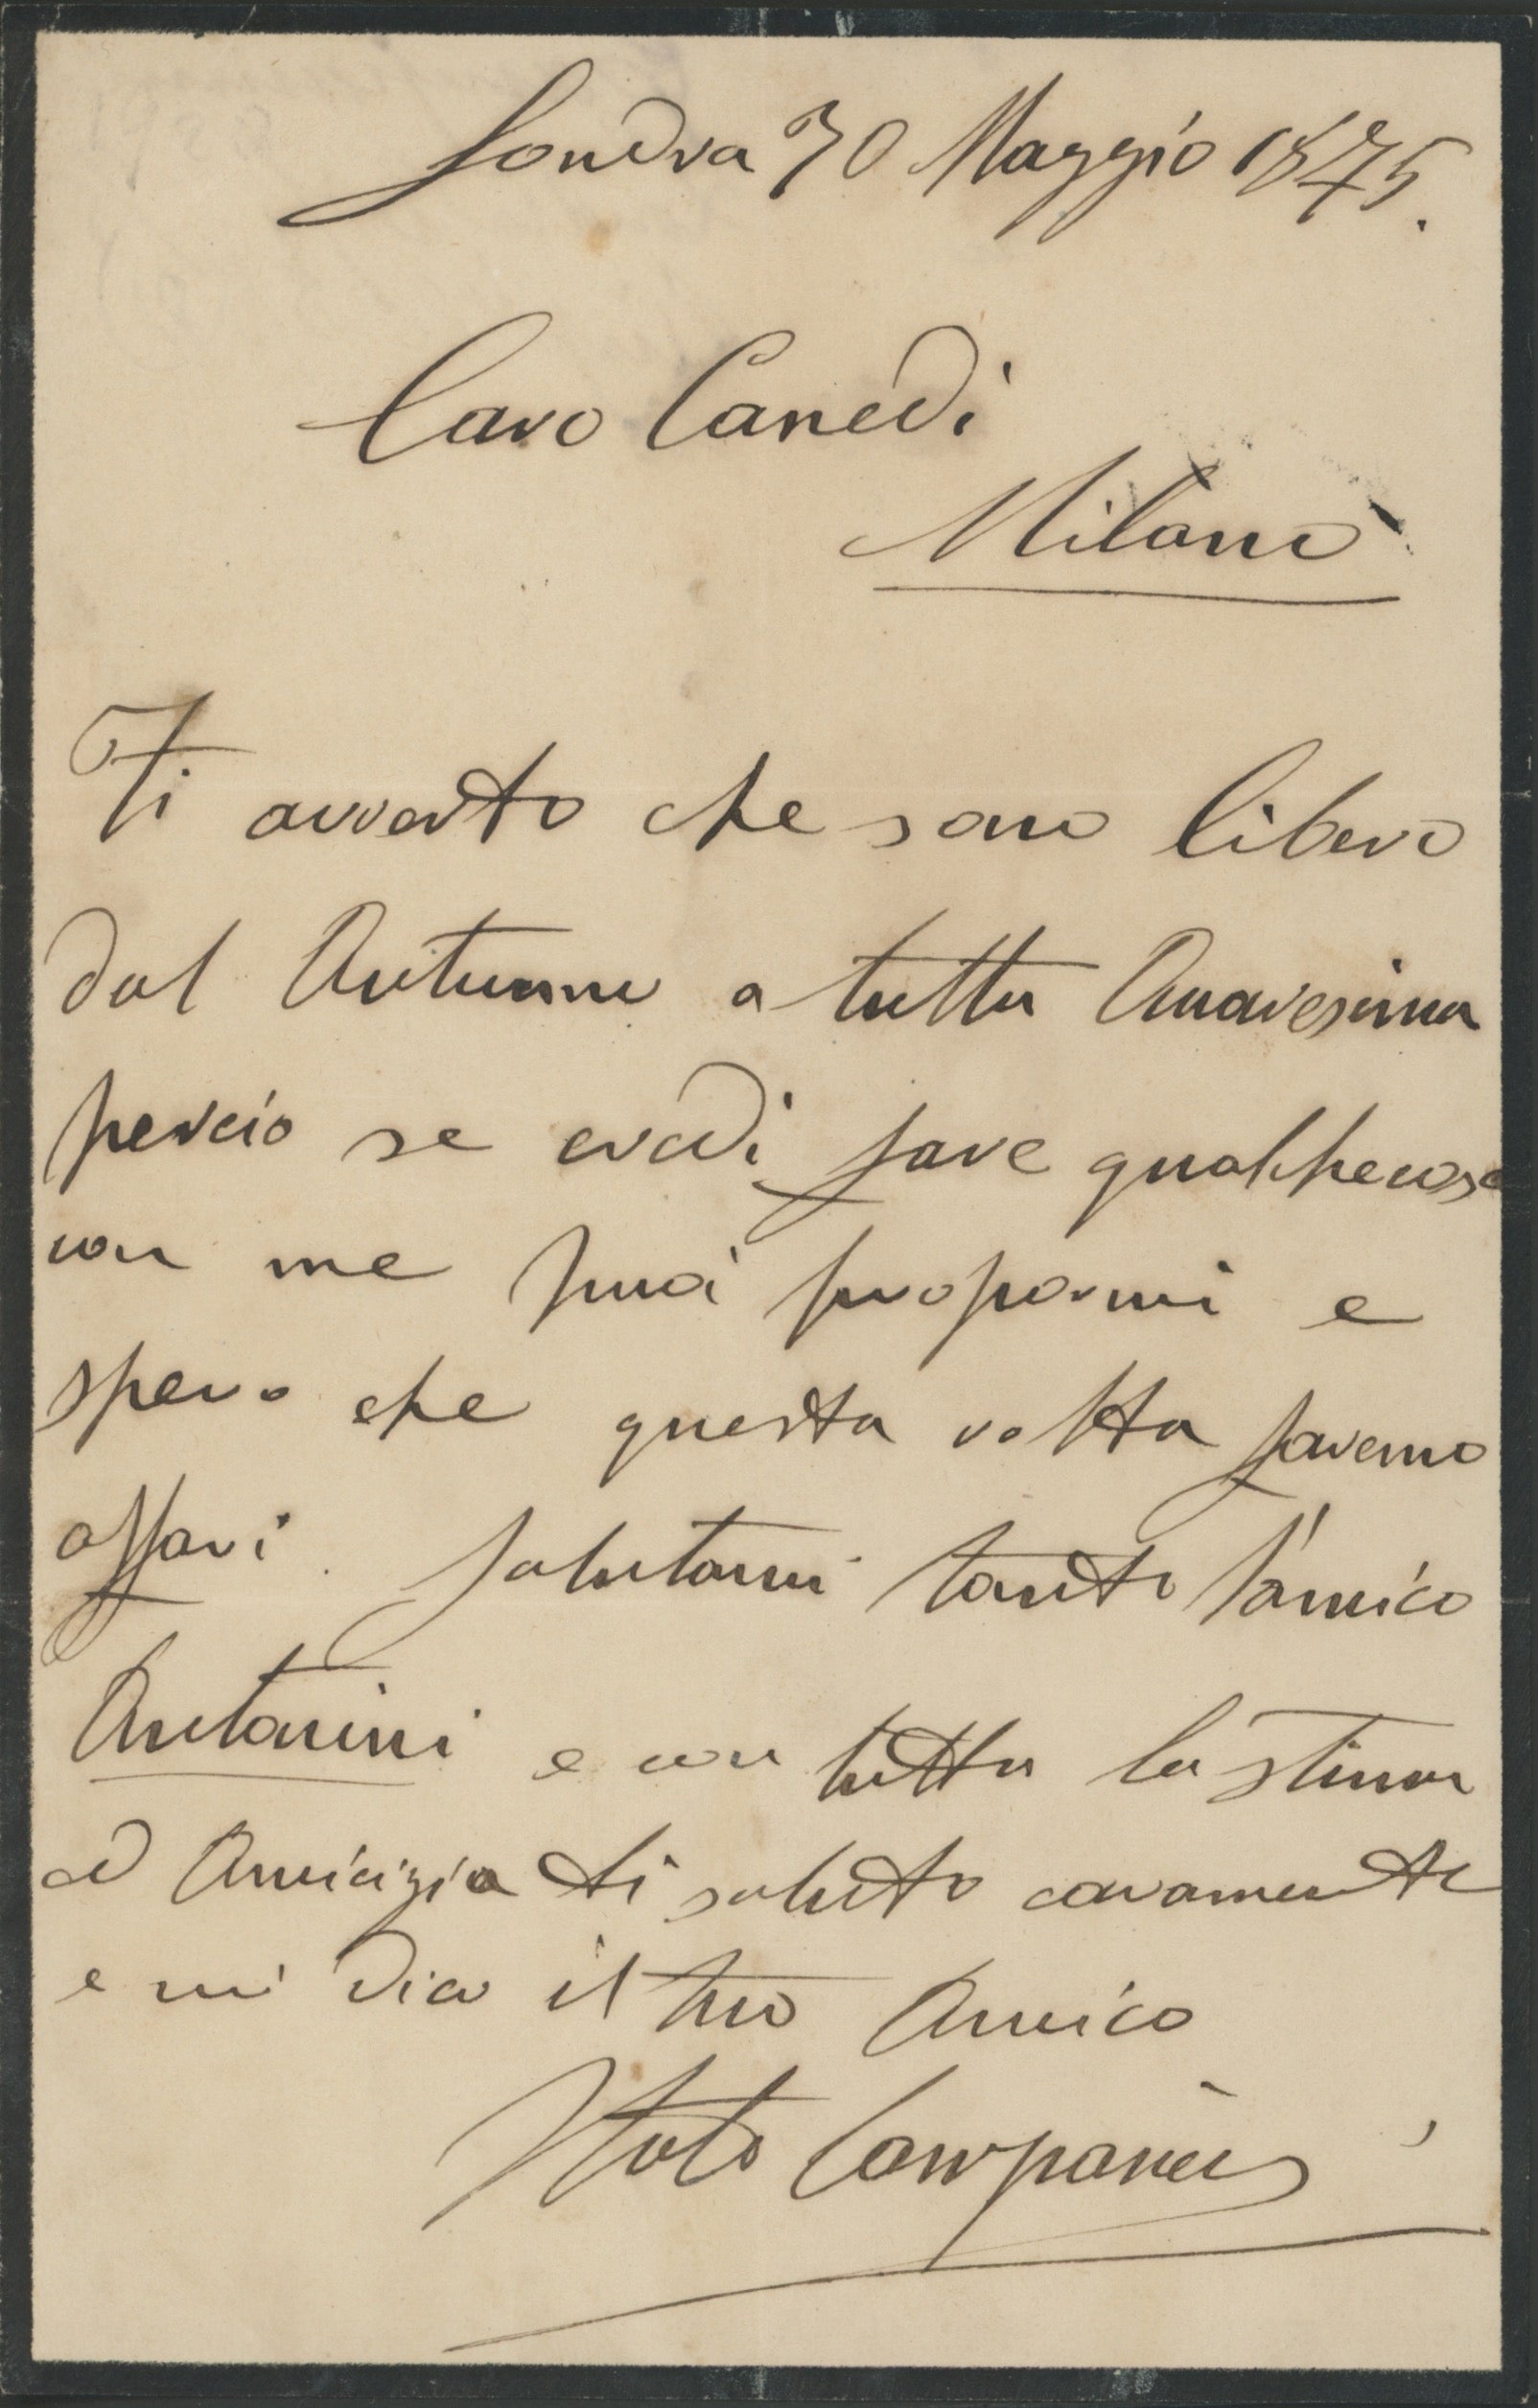 Londra 30 Maggio 1875.
Caro Canedi
Milano
Ti avverto che sono libero
dal Autunno a tutta Quaresima
perciò se credi fare qualchecosa
con me puoi propormi e
spero che questa volta faremo
affari. Salutami tanto l'amico
Antonini e con tutta la stima
ed Amicizia ti saluto caramente
e mi dico il tuo Amico
Italo Campanini